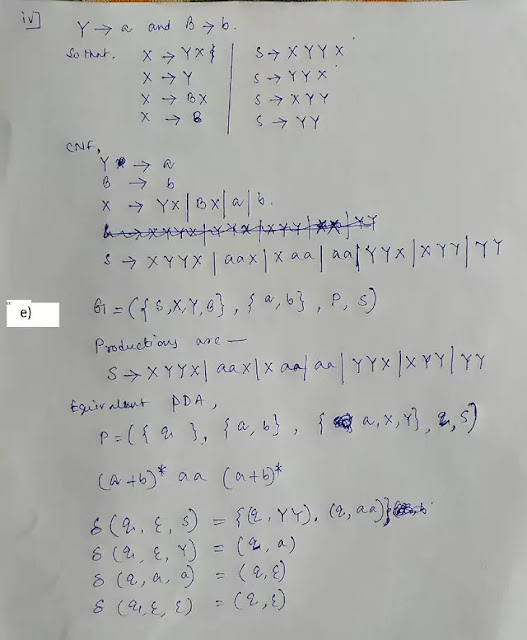 iv] Y → a and B → b.
So that. X → YX{ S → XYYX
X → Y S → YYX
X → BX S → XYY
X → B S → YY
CNF,
Y → a
B → b
X → YX | BX | a | b.
S → XYYX | aax | x aa | aa | YYX | XYY | YY
e) G = ({S,X,Y,B}, {a,b}, P, S)
Productions are —
S → XYYX | aax | x aa | aa | YYX | XYY | YY
Equivalent PDA,
P = ({q}, {a,b}, { a,X,Y}, q, S)
(a+b)* aa (a+b)*
δ(q, ε, S) = {(q, YY), (q, aa)}
δ(q, ε, Y) = (q, a)
δ(q, a, a) = (q, ε)
δ(q, ε, ε) = (q, ε)